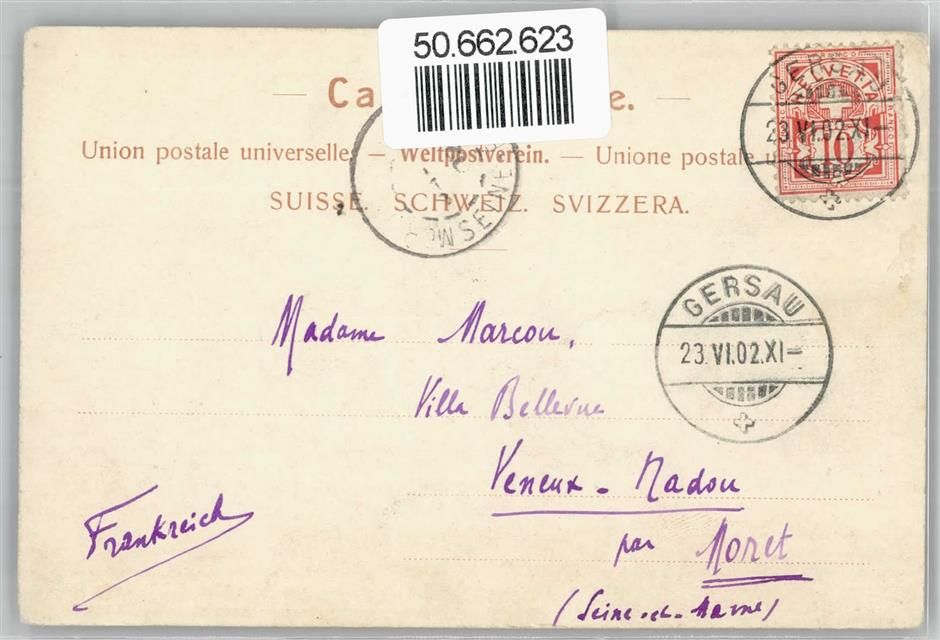 50.662.623
Union postale universelle. — Weltpostverein. — Unione postale
SUISSE. SCHWEIZ. SVIZZERA.
HELVETIA
10
23.VI.02.XI–
GERSAU
23.VI.02.XI–
Madame Marcou,
Villa Bellevue
Veneux-Nadou
par Moret
(Seine-et-Marne)
Frankreich